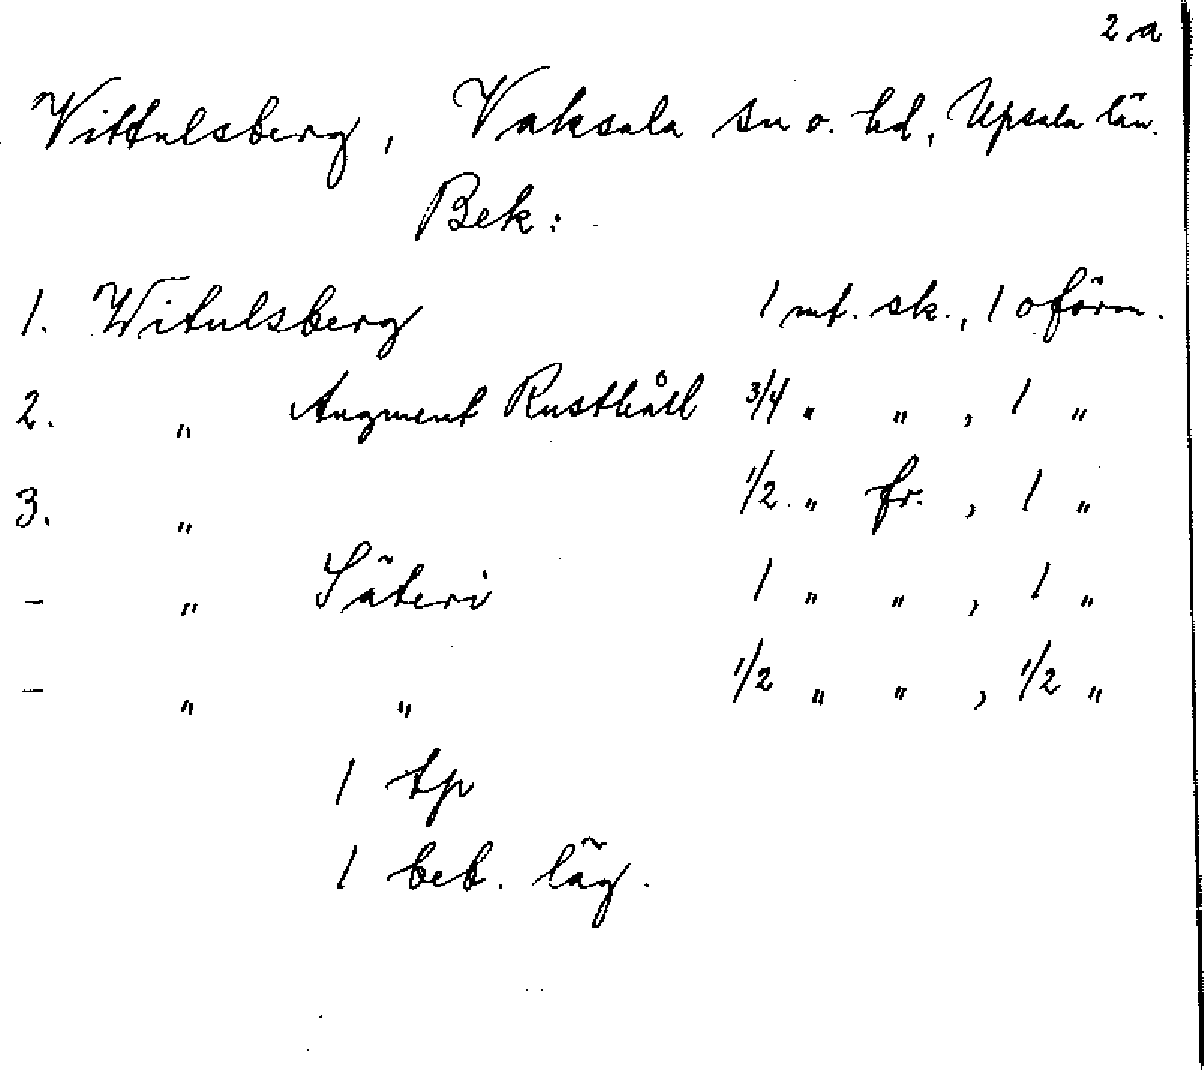 2 a
Vittulsberg, Vaksala sn o. hd, Upsala län.
Bek:
1. Witulsberg 1 mt. sk., 1 oförm.
2. " Augment Rusthåll 3/4 " " , 1 "
3. " 1/2 " fr. , 1 "
– " Säteri 1 " " , 1 "
– " " 1/2 " " , 1/2 "
1 tp
1 beb. läg.